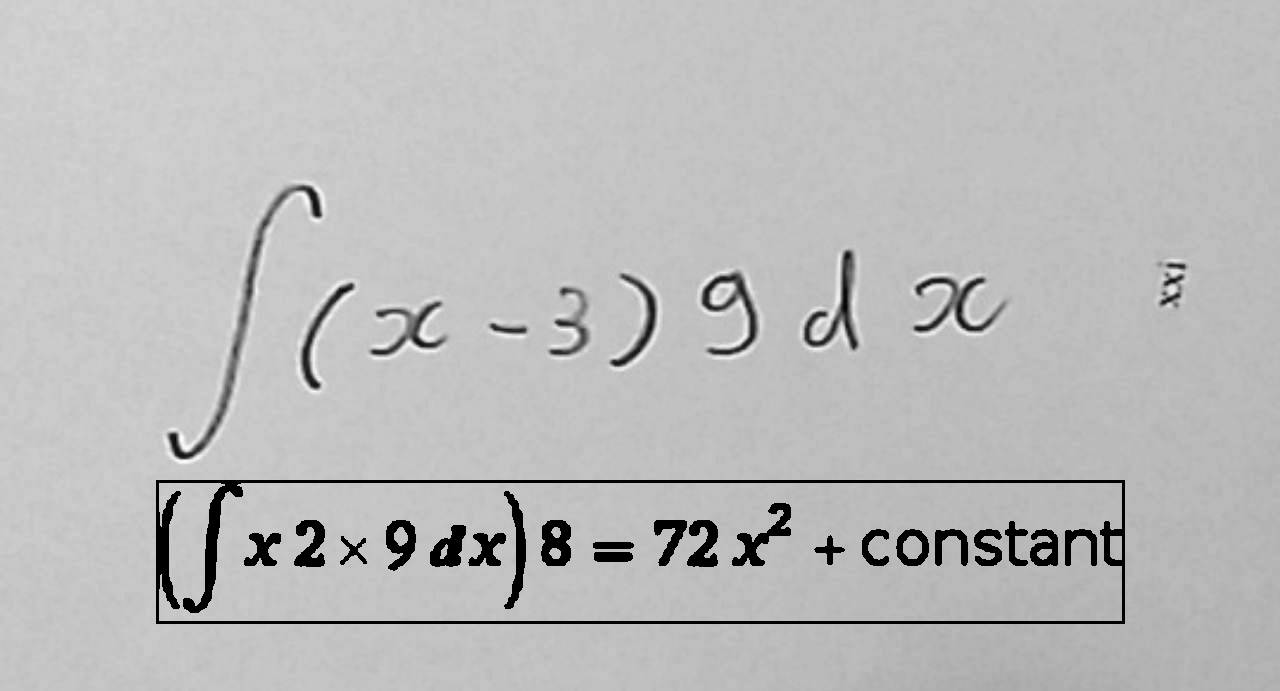 ∫(x-3) 9 d x
xxi
(∫ x 2 × 9 dx) 8 = 72 x² + constant